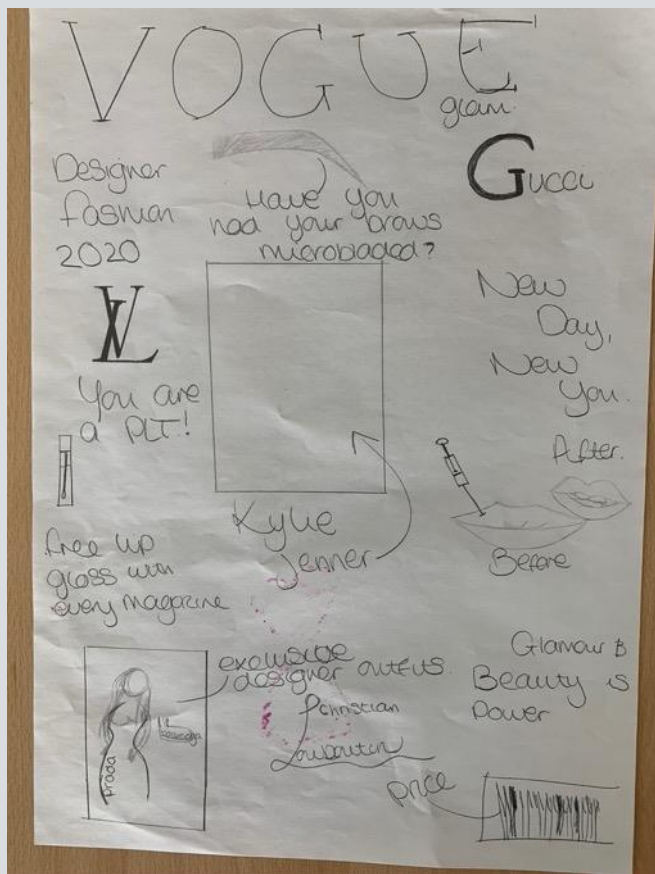 VOGUE
glam.
Designer
fashion
2020
Have you
had your brows
microbladed?
GUCCI
LV
You are
a PLT!
New
Day,
New
You.
After.
Before
Kylie
Jenner
free lip
gloss with
every magazine
exclusive
designer outfits.
Prada
Christian
Louboutin
Glamour B
Beauty is
Power
price